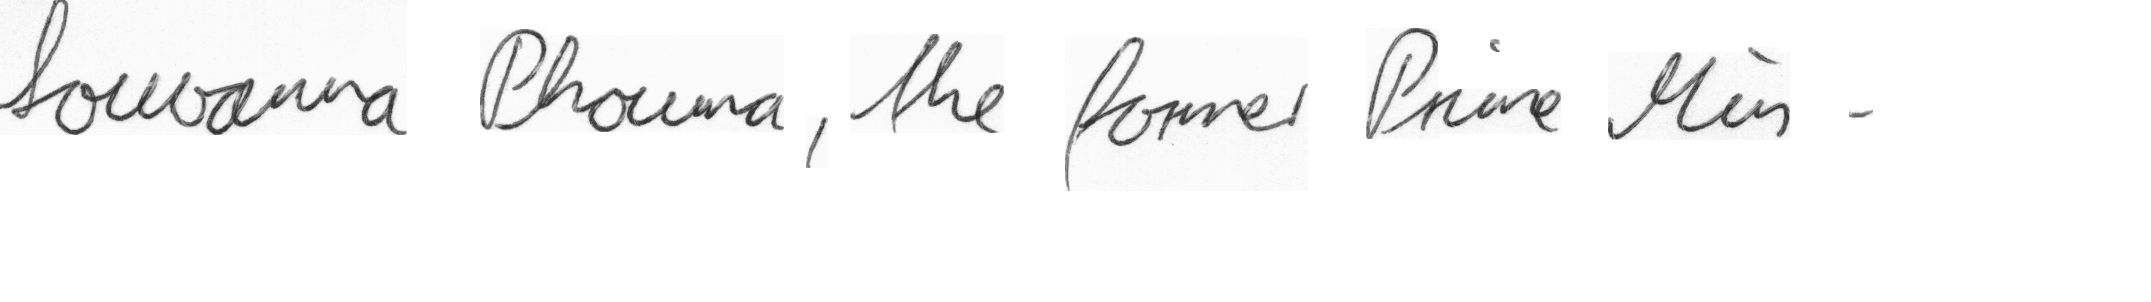 Souvanna Phouma, the former Prime Min -